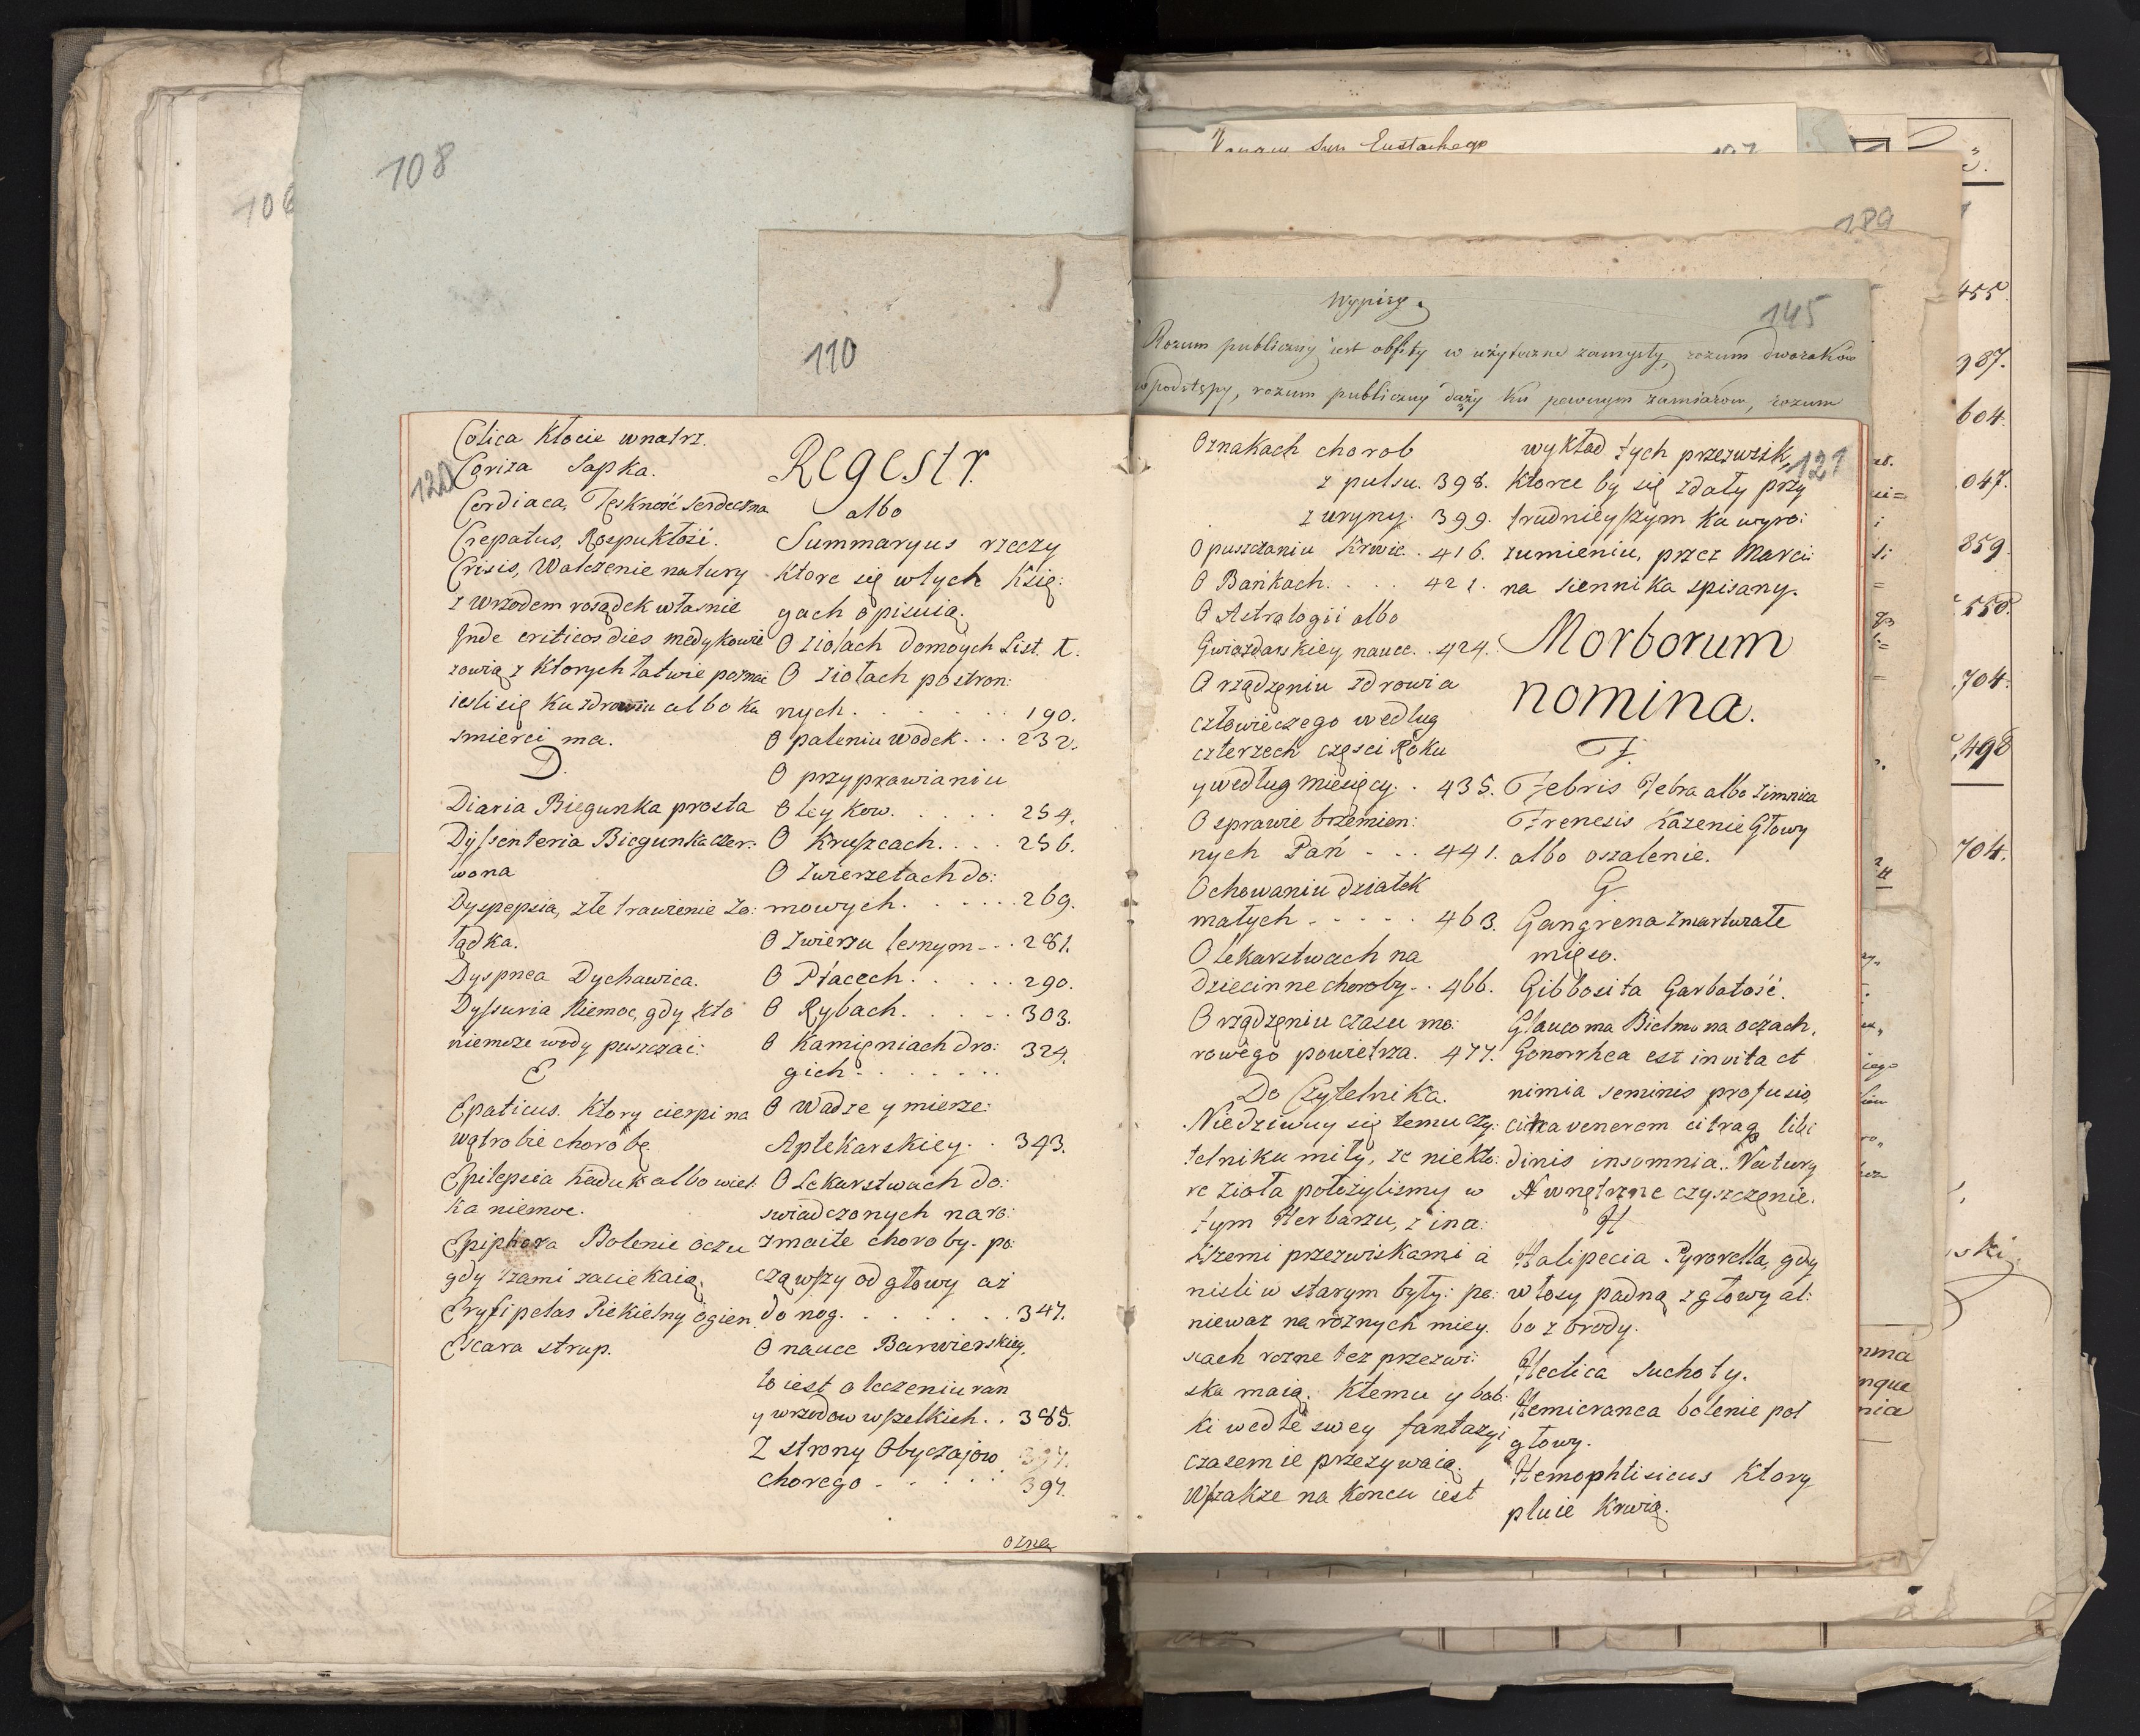 106
108
110
120
Colica Kłocie wnątrz.
Coriza Sapka.
Cordiaca, Tęskność Serdeczna
Crepatus, Rospukłosi.
Crisis, Walczenie natury
z wrzodem rosądek własnie
Inde criticos dies medykowie
zowią z Ktorych łatwie poznać
iesli się Ku zdrowiu albo Ku
smierci ma.
D.
Diaria Biegunka prosta
Dyssenteria Biegunka czer:
wona
Dyspepsia, złe trawienie Żo:
łądka.
Dyspnea Dychawica.
Dyssuria Niemoc, gdy kto
niemoze wody puszczac:
E
Epaticus. Ktory cierpi na
wątrobie chorobę.
Epilepsia Kaduk albo wiel:
Ka niemoc.
Epiphora Bolenie oczu
gdy łzami zaciekaią.
Erysipelas Piekielny ogien.
Escara strup.
Regestr.
albo
Summaryus rzeczy
Ktore się w tych Xsię:
gach opisuią.
O ziołach domoych List. 1.
O ziołach postron:
nych . . . . . . . 190.
O paleniu wodek . . . 232.
O przyprawianiu
Oleykow. . . . . . 254.
O Kruszcach. . . . 256.
O Zwierzetach do:
mowych. . . . . . 269.
O zwierzu lesnym - - . 281.
O Ptacech. . . . . . 290.
O Rybach. . . . . . 303.
O Kamięniach dro: 324.
gich . . . . . . .
O Wadze y mierze:
Aptekarskiey. . 343.
O Lekarstwach do:
swiadczonych na ro:
zmaite choroby. po:
cząwszy od głowy aż
do nog. . . . . . . . 347.
O nauce Barwierskiey,
to iest o leczeniu ran
y wrzodow wszelkich. . 385.
Z strony Obyczajow
chorego - . . . . 397.
ozna
189
Wypisy
145
Rozum publiczny jest obfity w użyteczne zamysły, rozum dworaków
w podstępy, rozum publiczny dąży ku pewnym zamiarom, rozum
121
Oznakach chorob
z pulsu. 398.
z uryny. 399.
O puszczaniu Krwie. . 416.
O Bańkach. . . . . 421.
O Astralogii albo
Gwiazdarskiey nauce. . 424.
O rządzęniu zdrowia
człowieczego według
czterzech części Roku
y według miesięcy. . 435.
O sprawie brzemien:
nych Pań - - . 441.
O chowaniu dziatek
małych - - - - . 463.
O lekarstwach na
dziecinne choroby. . 466.
O rządzęniu czasu mo:
rowego powietrza. 477.
Do Czytelnika.
Niedziwuy się temu czy:
telniku miły, ze niektó:
re zioła położylismy w
tym Herbarzu, z ina:
kszemi przezwiskami a
nisli w starym były: po:
niewaz na roznych miey.
scach rozne tez przezwi:
ska maią. Ktemu y bab:
ki wedle swey fantazyi
czasem ie przezywaią.
Wszakze na Koncu iest
wykład tych przezwisk,
Ktorce by się zdały przy
trudnieyszym Ku wyro:
zumieniu, przez Marci:
na siennika spisany.
Morborum
nomina.
F.
Febris Febra albo zimnica
Frenesis Kazenie Głowy
albo oszalenie.
G.
Gangrena zmartwiałe
mięso.
Gibbosita Garbatość.
Glaucoma Bielmo na oczach.
Gonorrhea est invita et
nimia seminis profusio,
citra venerem citraq libi
dinis insomnia.. Natury
Nwnętrzne czyszczęnie.
H
Halipecia . Pyrorella, gdy
włosy padną z głowy al:
bo z brody.
Hectica suchoty.
Hemicranea bolenie poł
głowy.
Hemophtisicus Ktory
pluie Krwią.
455.
987.
604.
047.
859.
550.
704.
498
704.